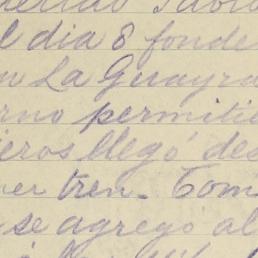 l dia 8 fonde
n La Guayra
rno permitie
ieros llegó des
mer tren. Tom
se agregó al